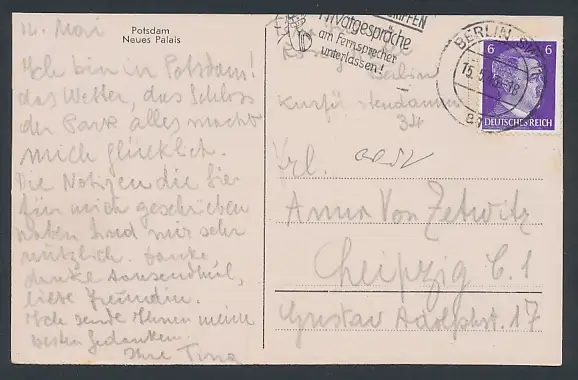 Potsdam
Neues Palais
14. Mai
Ich bin in Potsdam!
das Wetter, das Schloss
der Park alles macht
mich glücklich.
Die Notizen die Sie
für mich geschrieben
haben sind mir sehr
nützlich. Danke
danke tausendmal,
liebe Freundin.
Ich sende Ihnen meine
besten Gedanken.
Ihre Tina
Privatgespräche
am Fernsprecher
unterlassen!
BERLIN SW
15.5.
6 6
DEUTSCHES REICH
Berlin
Kurfürstendamm
Frl.
Anna Von Zetwitz
Leipzig C.1
Gustav Adolphst. 17